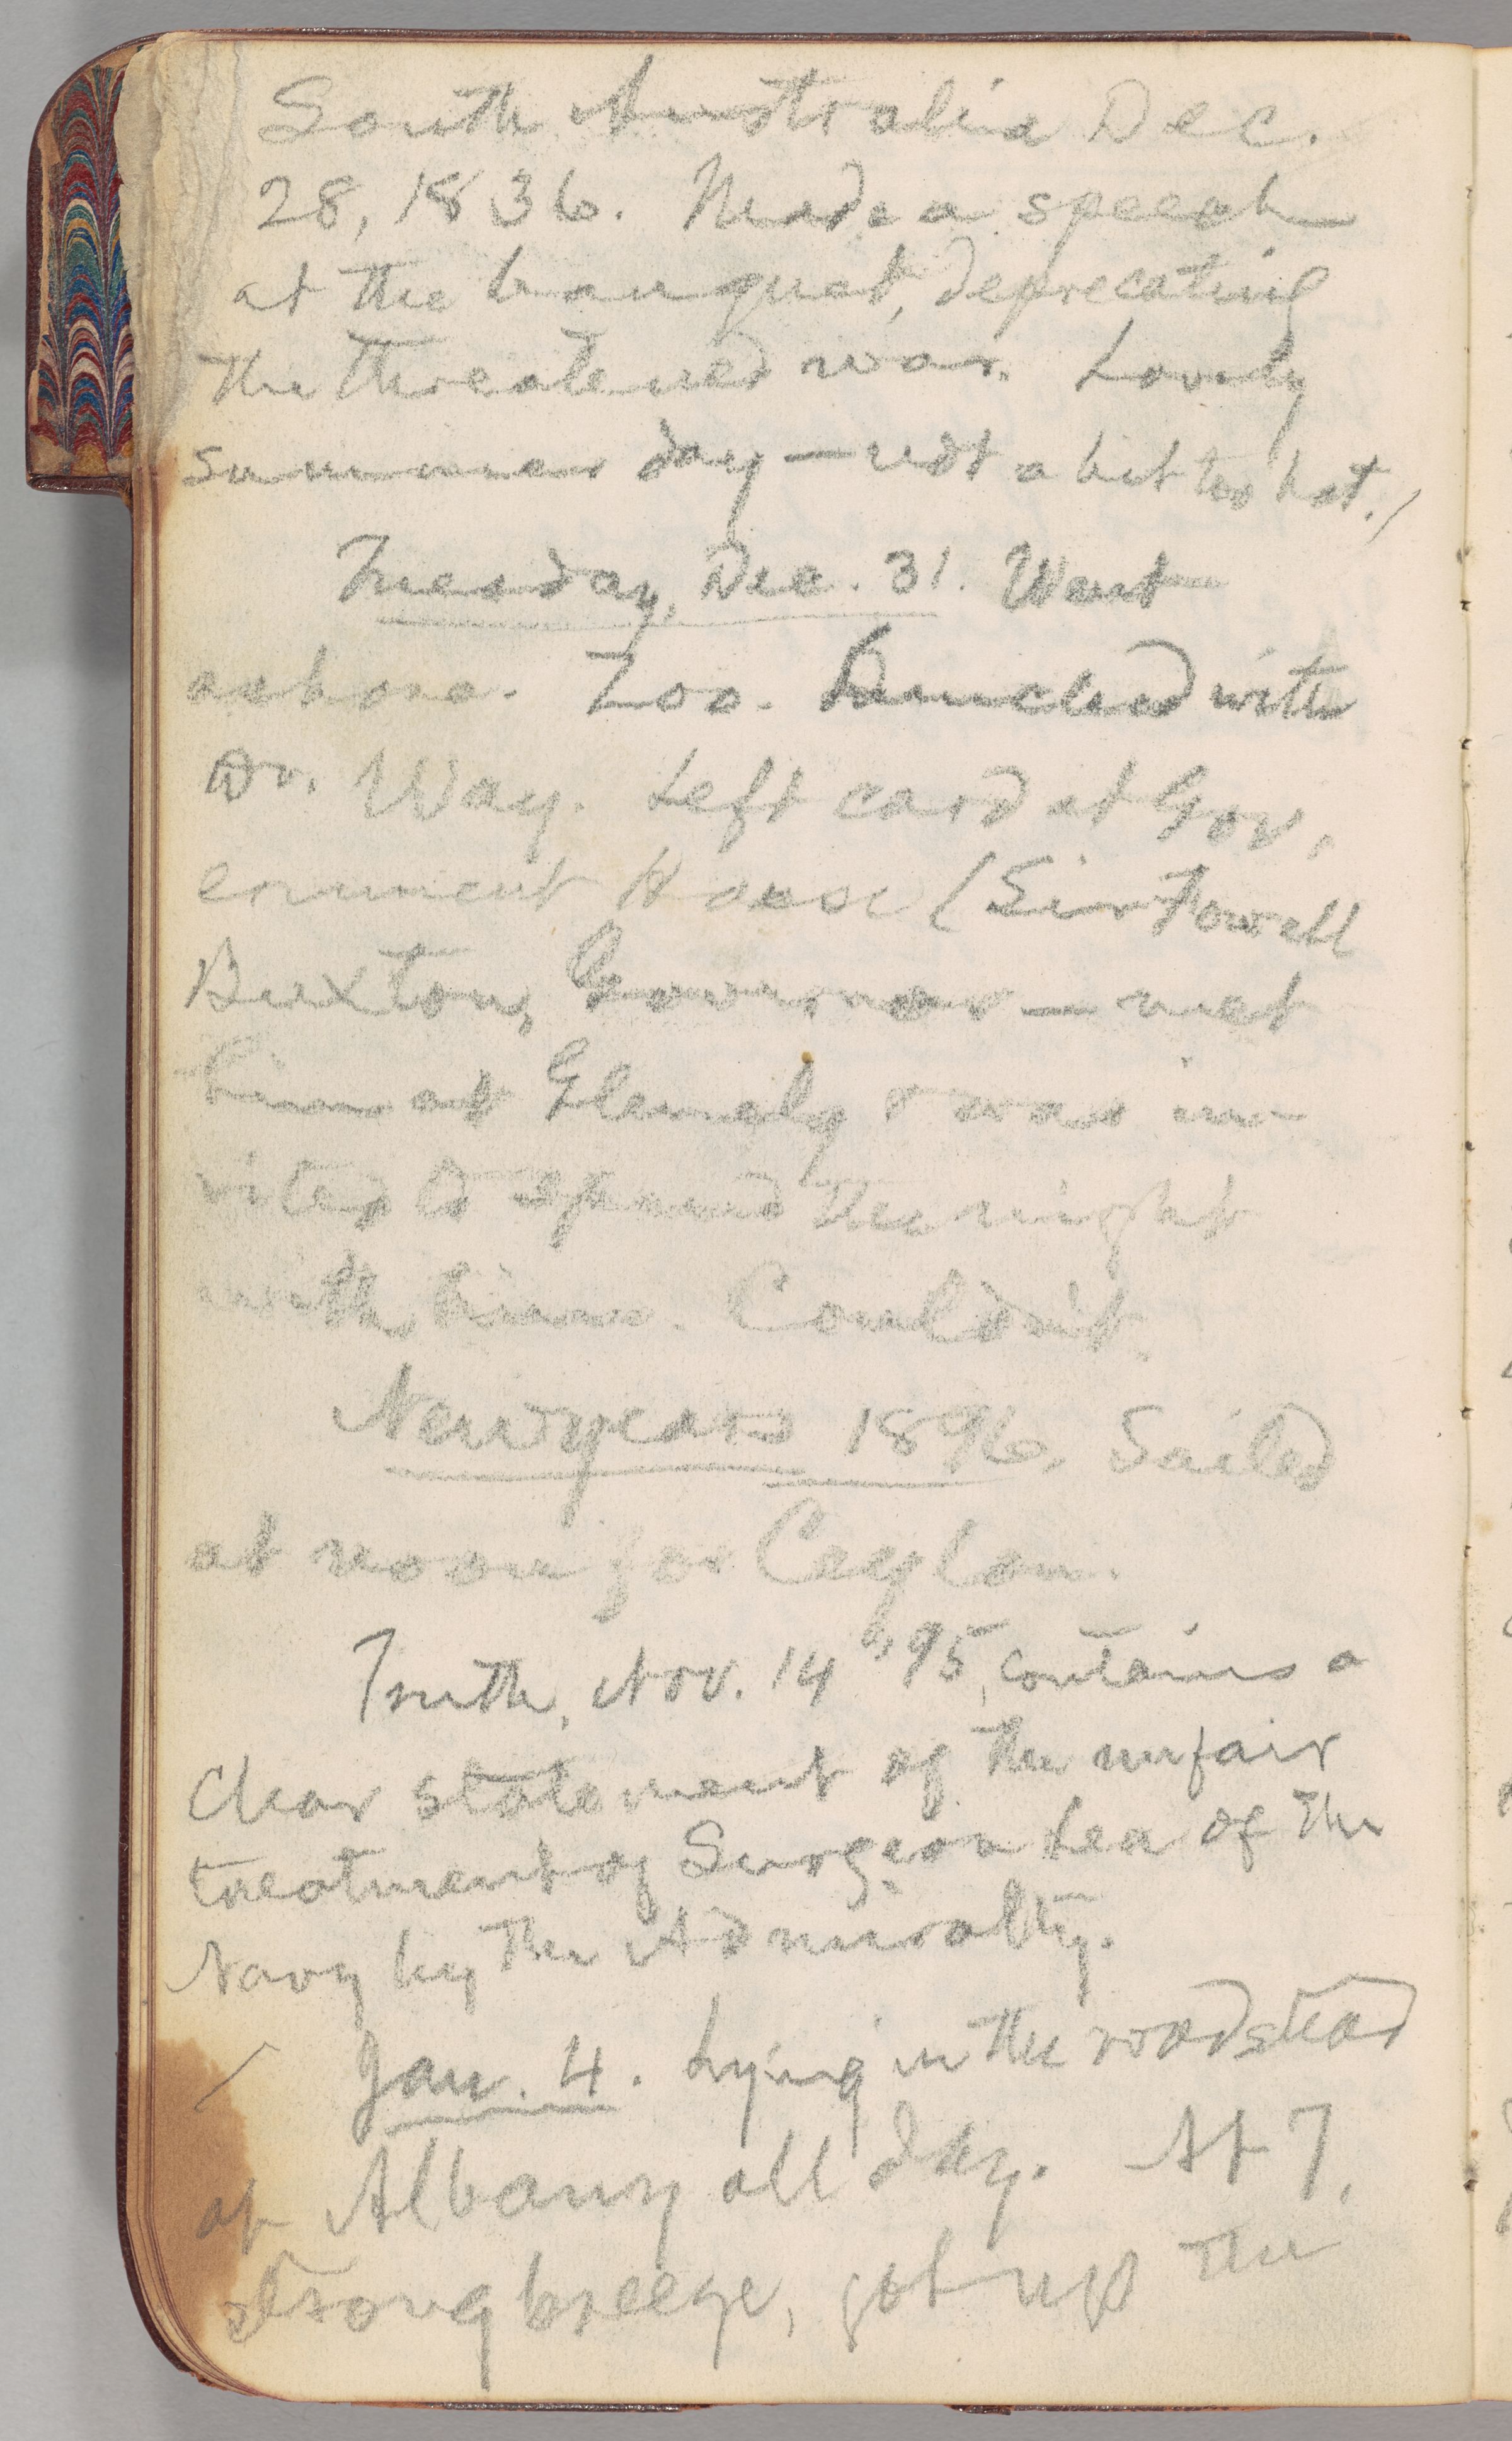 South Australia Dec.
28, 1836. Made a speech
at the banquet, deprecating
the threatened war. Lovely
summer day — not a bit too hot. /
Tuesday, Dec. 31. Went
ashore. Zoo. Lunched with
Dr. Way. Left card at Gov-
ernment House (Sir Fowell
Buxton, Governor — met
him at Glenelg & was in-
vited to spend the night
with him. Couldn't.
Newyears 1896. Sailed
at noon for Ceylon.
Truth, Nov. 14, '95, contains a
clear statement of the unfair
treatment of Surgeon Lea of the
Navy by the Admiralty.
/ Jan. 4. Lying in the roadstead
of Albany all day. At 7,
strong breeze, got up the